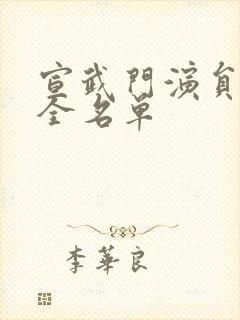 宣武門演員
全名單
李華良